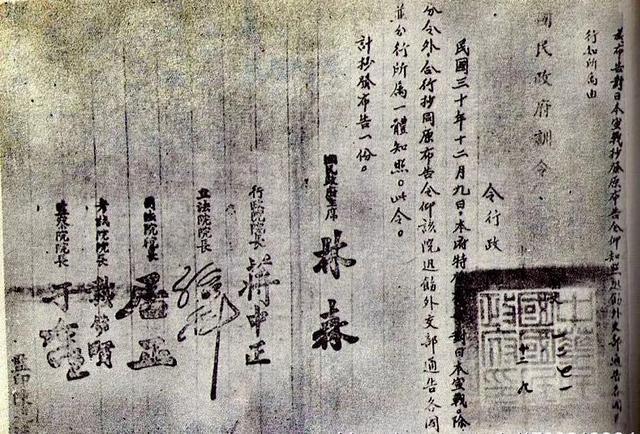 布告對日本宣戰抄發原布告令仰知照並飭外交部通告各國
行知所屬由
國民政府訓令
令行政
民國三十年十二月九日，本府特 對日本宣戰。除
分令外，合行抄同原布告令仰該院迅飭外交部通告各國
並分行所屬一體知照。此令。
計抄發布告一份。
國民政府主席 林森
行政院院長 蔣中正
立法院院長 孫科
司法院院長 居正
考試院院長 戴傳賢
監察院院長 于右任
監印